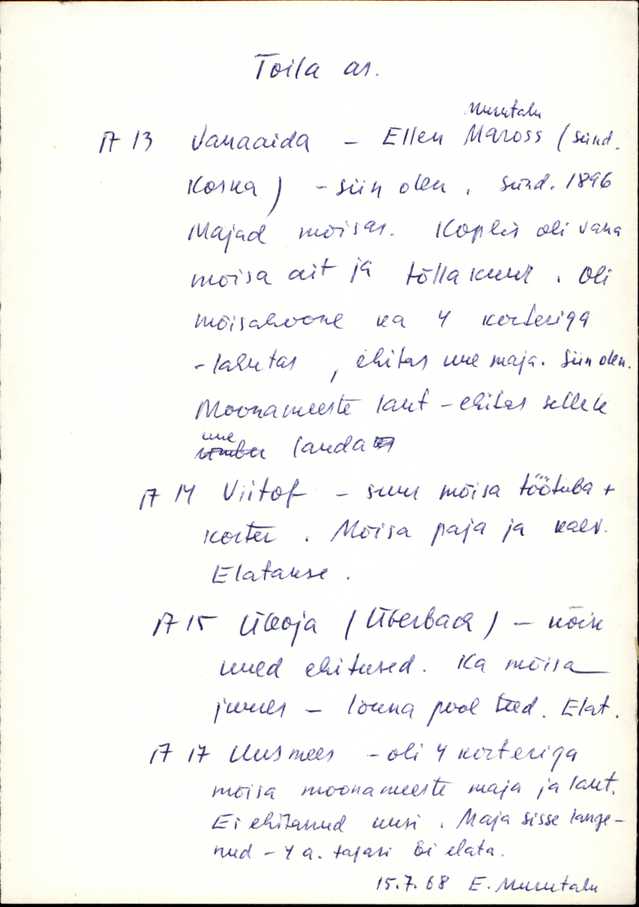 Toila as.
Murutalu
A 13 Vanaaida – Ellen Maross (sünd.
Koska) – siin olen, sünd. 1896
Majad mõisas. Koplis oli vana
mõisa ait ja tõllakuur. Oli
mõisahoone ka 4 korteriga
– lahutas, ehitas uue maja. Siin olen.
Moonameeste laut – ehitas sellele
uue lauda
A 14 Viitof – suur mõisa töötuba +
korter. Mõisa paja ja kaev.
Elatakse.
A 15 Ülioja (Überbach) – kõik
uued ehitused. Ka mõisa
juures – lõuna pool teed. Elat.
A 17 Uusmees – oli 4 korteriga
mõisa moonameeste maja ja laut.
Ei ehitanud uusi. Maja sisse lange-
nud – 4 a. tagasi. Ei elata.
15.7.68 E. Murutalu